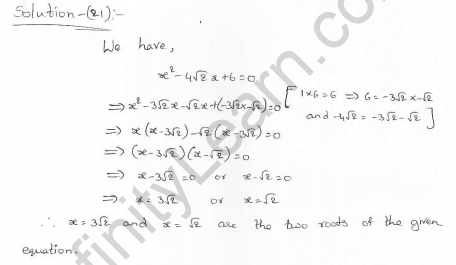 Solution-(21):-
We have,
x² - 4√2 x + 6 = 0
⇒ x² - 3√2 x - √2 x + (-3√2 x - √2) = 0 [ 1×6 = 6 ⇒ 6 = -3√2 x - √2
and -4√2 = -3√2 - √2 ]
⇒ x (x - 3√2) - √2 (x - 3√2) = 0
⇒ (x - 3√2) (x - √2) = 0
⇒ x - 3√2 = 0 or x - √2 = 0
⇒ x = 3√2 or x = √2
∴ x = 3√2 and x = √2 are the two roots of the given
equation.
finityLearn.com